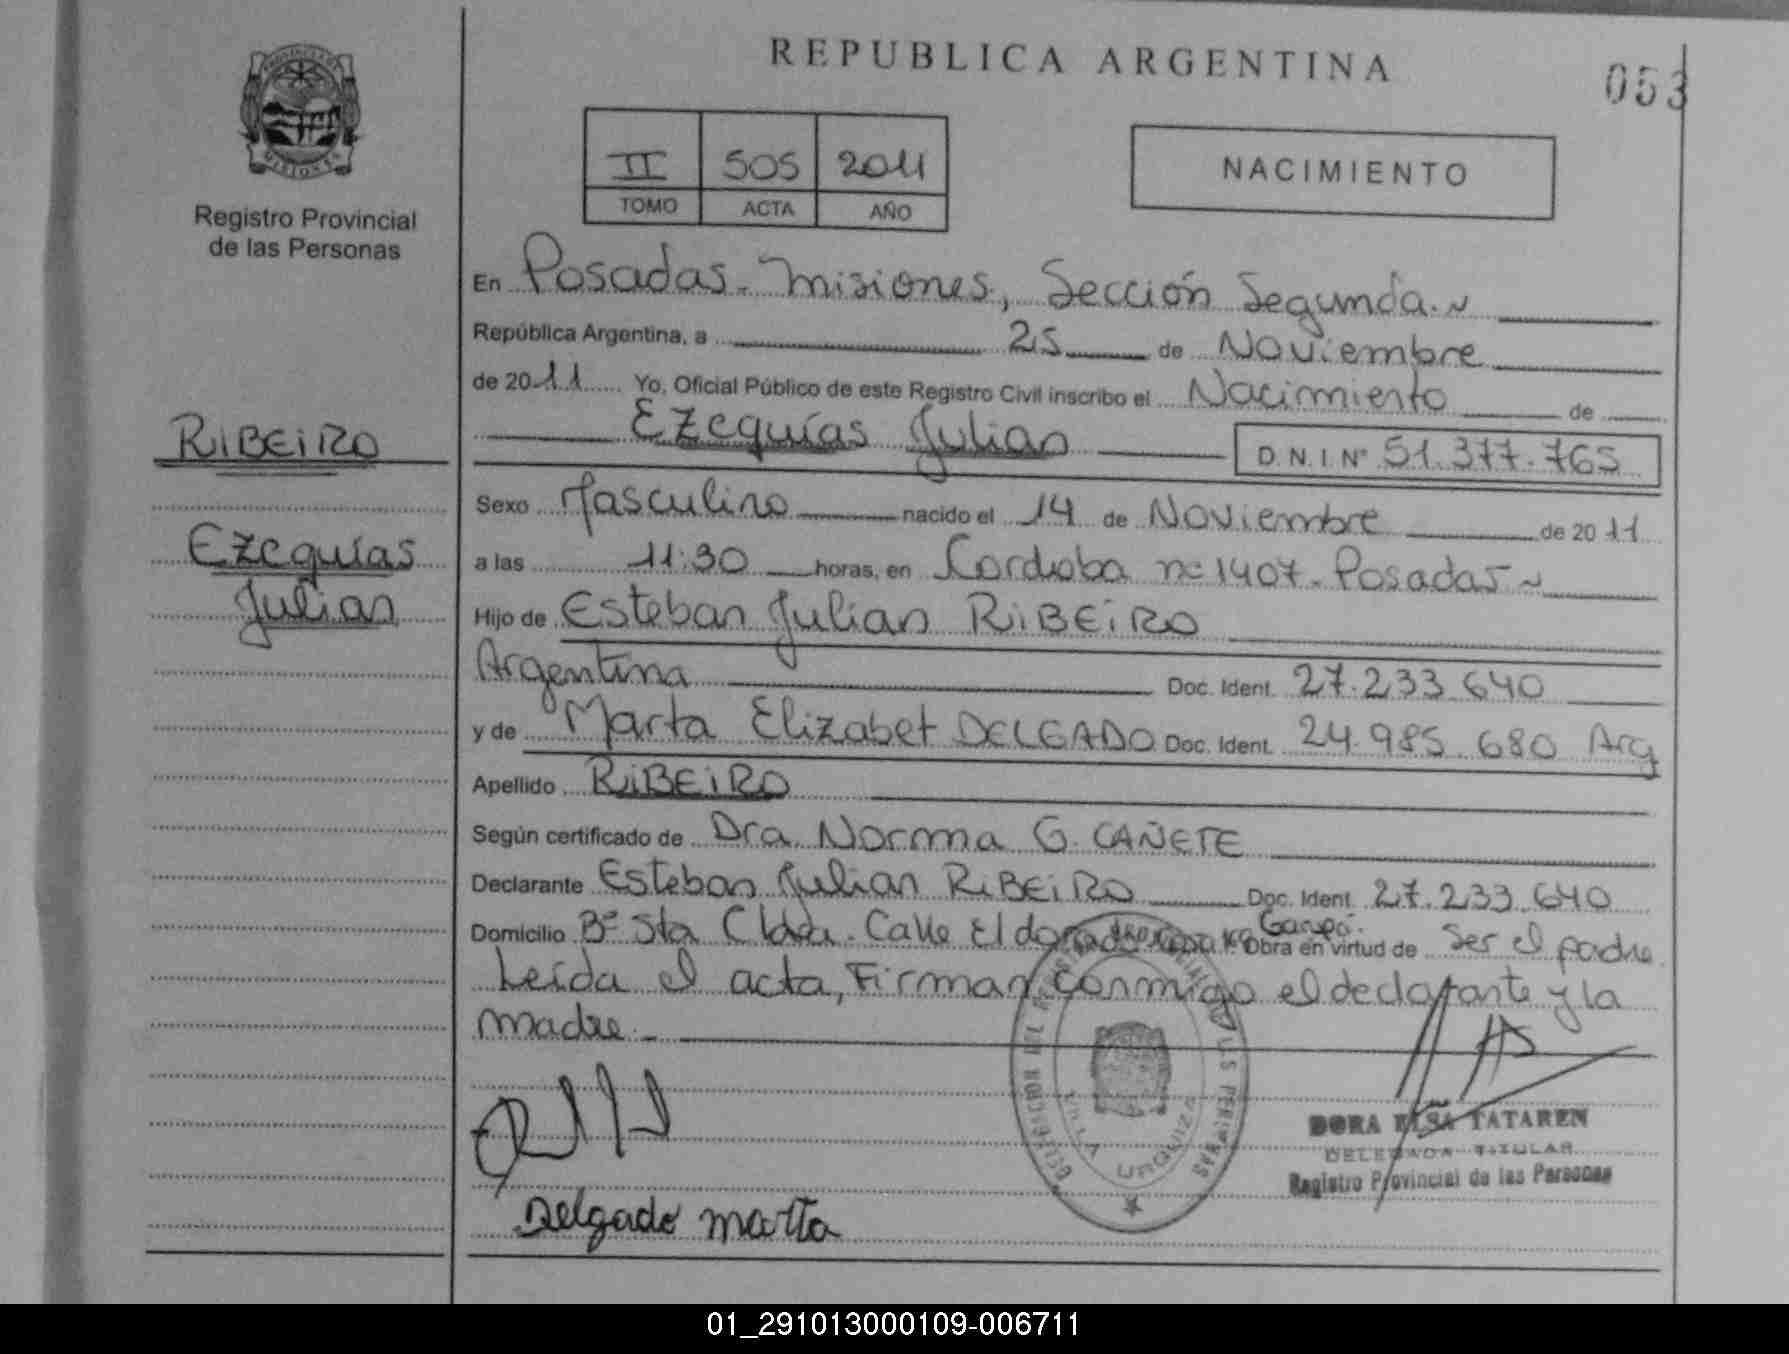 REPUBLICA ARGENTINA
053
PROVINCIA DE
MISIONES
Registro Provincial
de las Personas
II 505 2011
TOMO ACTA AÑO
NACIMIENTO
En Posadas. Misiones, Sección Segunda.~
República Argentina, a 25 de Noviembre
de 2011 Yo, Oficial Público de este Registro Civil inscribo el Nacimiento de
Ezequías Julian D.N.I. Nº 51.377.765
RIBEIRO
Ezequías
Julian
Sexo Masculino nacido el 14 de Noviembre de 2011
a las 11:30 horas, en Cordoba nº 1407. Posadas ~
Hijo de Esteban Julian RIBEIRO
Argentina Doc. Ident. 27.233.640
y de Marta Elizabet DELGADO Doc. Ident. 24.985.680 Arg
Apellido RIBEIRO
Según certificado de Dra. Norma G. CAÑETE
Declarante Esteban Julian RIBEIRO Doc. Ident. 27.233.640
Garupá.
Domicilio Bº Sta Clara. Calle El dorado Obra en virtud de Ser el padre
Leída el acta, Firman conmigo el declarante y la
madre.
Delgado marta
VILLA URQUIZA
DORA ELSA TATAREN
DELEGADA TITULAR
Registro Provincial de las Personas
01_291013000109-006711